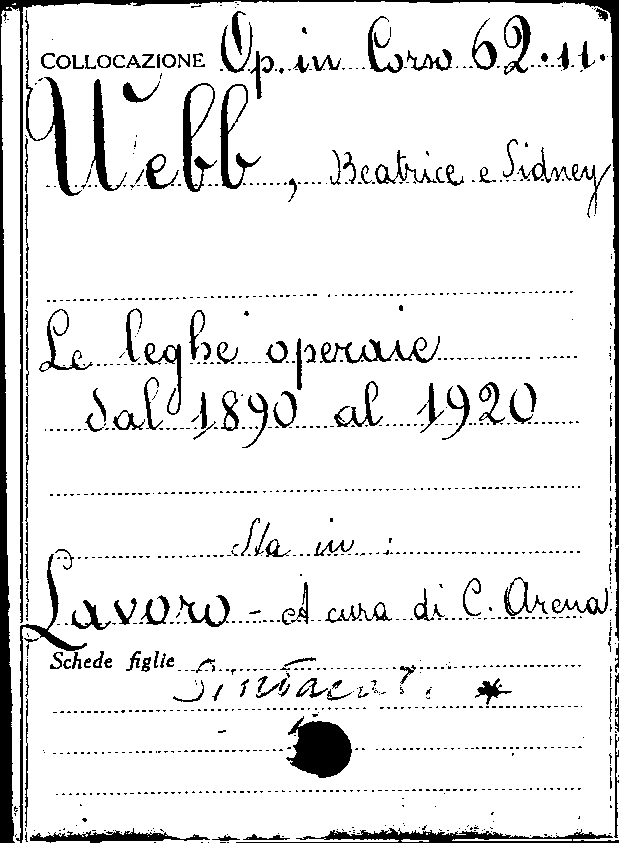 COLLOCAZIONE Op. in Corso 62.11.
Webb, Beatrice e Sidney
Le leghe operaie
dal 1890 al 1920
Sta in :
Lavoro - A cura di C. Arena
Schede figlie
Sindacati *